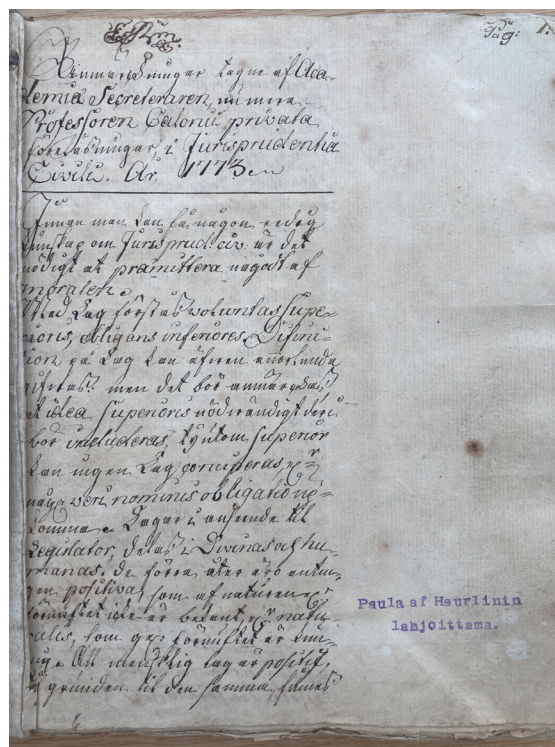 Pag: 1.
Anmärckningar tagne af Aca-
demiæ Secreteraren, nu mera
Professoren Calonii privata
föreläsningar i Jurisprudentia
Civili. År 1773
Innan man kan få någon redig
kunskap om Jurisprud: civ: är det
nödigt at præmittera något af
moralen.
Med Lag förstås voluntas Supe-
rioris, obligans inferiores. Difini-
tion på Lag kan äfwen annorlunda
men det bör anmärckas
at idea Superioris nödwändigt deri
bör includeras, ty utom Superior
kan ingen Lag
veri nominis obligation
komma. Lagar i anseende til
Legislator, delas i Divinas och hu-
manas. de förra åter äro antin-
gen positiva, som af naturen
förnuftet icke är bekant, natu-
rales, som förnuftet är
All mensklig lag är positif,
grunden til den samma,
Paula af Heurlinin
lahjoittama.